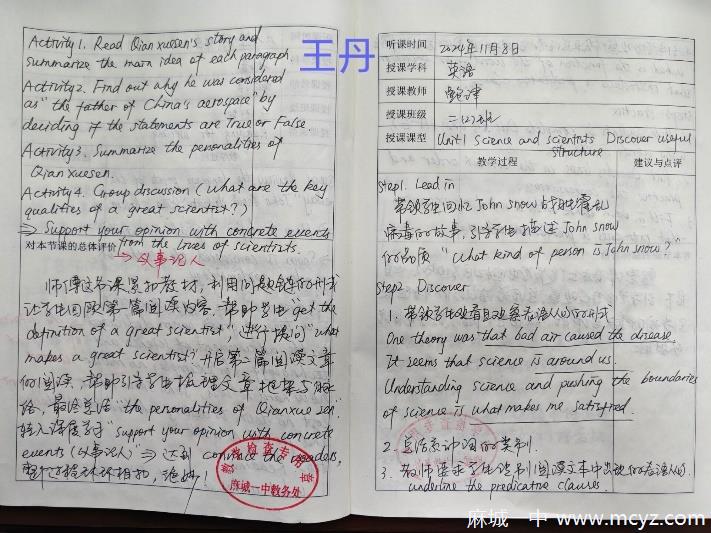 Activity 1. Read Qian xuesen's story and
summarize the main idea of each paragraph.
Activity 2. Find out why he was considered
as "the father of China's aerospace" by
deciding if the statements are True or False
Activity 3. Summarize the personalities of
Qian xuesen.
Activity 4. Group discussion (what are the key
qualities of a great scientist?)
⇒ Support your opinion with concrete events
from the lives of scientists.
对本节课的总体评价
→ 以事论人
王丹
师傅这节课紧扣教材，利用问题链的形式
让学生回顾第一篇阅读内容，帮助学生"get the
definition of a great scientist", 进行提问"what
makes a great scientist?" 开启第二篇阅读文章
的阅读，帮助引导学生梳理文章框架与脉
络，最终总结"the personalities of Qianxue sen".
转入深度学习"support your opinion with concrete
events (以事论人) ⇒ 达到 convince the readers,
整个过程环环相扣，绝妙！
教学检查专用章
麻城一中教务处
听课时间
2024年11月8日
授课学科
英语
授课教师
授课班级
授课课型
Unit1 Science and scientists Discover useful
structure
教学过程
建议与点评
Step1. Lead in
带领学生回忆John snow 战胜霍乱
病毒的故事，引导学生描述John snow
的品质 "What kind of person is John snow?"
Step2. Discover
1. 带领学生观察表语从句的形式
One theory was that bad air caused the disease.
It seems that science is around us.
Understanding science and pushing the boundaries
of science is what makes me satisfied.
2. 总结系动词的类别.
3. 教师要求学生找到阅读文本中出现的表语从句.
underline the predicative clauses.
麻城一中 www.mcyz.com